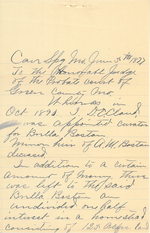 Cave Spg Mo Jan 5th 1877
To the Honorable Judge
of the Probate court of
Green County Mo
Whereas in
Oct 1873 I,
was appointed curator
for Brilla Boston
Minor heir of
deceased
In addition to a certain
amount of money there
was left to the said
Brilla Boston an
undivided one half
interest in a homestead
consisting of